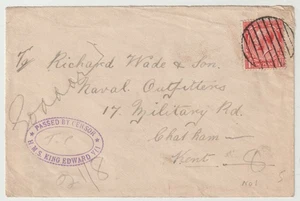 To Richard Wade & Son.
Naval Outfitters
17 Military Rd.
Chatham
Kent.
PASSED BY CENSOR
H.M.S. KING EDWARD VII